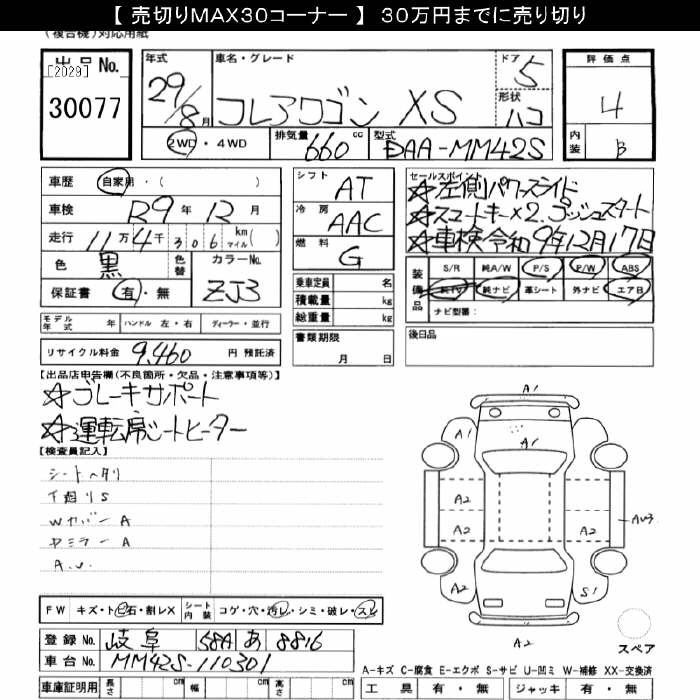 【 売切りMAX30コーナー 】 30万円までに売り切り
(複合機) 対応用紙
出品 No.
[2029]
30077
年式
29/8月
車名・グレード
フレアワゴン XS
ドア 5
形状 ハコ
評価点
4
内装 B
2WD・4WD
排気量 660 cc
型式 DAA-MM42S
車歴 自家用・( )
車検 R9年12月
走行 11万4千306 km マイル( )
色 黒 色替 カラーNo. ZJ3
保証書 有・無
シフト AT
冷房 AAC
燃料 G
乗車定員 名
積載量 kg
総重量 kg
書類期限
月 日
セールスポイント
☆左側パワースライド
☆スマートキー×2.プッシュスタート
☆車検令和9年12月17日
装備品
S/R 純A/W P/S P/W ABS
純TV 純ナビ 革シート 外ナビ エアB
ナビ型番:
後日品
モデル年式 年 ハンドル 左・右 ディーラー・並行
リサイクル料金 9,460 円 預託済
【出品店申告欄(不良箇所・欠品・注意事項等)】
☆ブレーキサポート
☆運転席シートヒーター
【検査員記入】
シートヘタリ
下廻りS
Wカバー A
ドミラー A
A.U.
A1
A1
A1
A2 A2
A2 A2
AU3
A2 S1
A2
スペア
FW キズ・ト石・割レX シート内装 コゲ・穴・汚レ・シミ・破レ・スレ
登録 No. 岐阜 58A あ 8816
車台 No. MM42S-110301
A-キズ C-腐食 E-エクボ S-サビ U-凹ミ W-補修 XX-交換済
車庫証明用 長さ cm 幅 cm 高さ cm
工具 有・無 ジャッキ 有・無